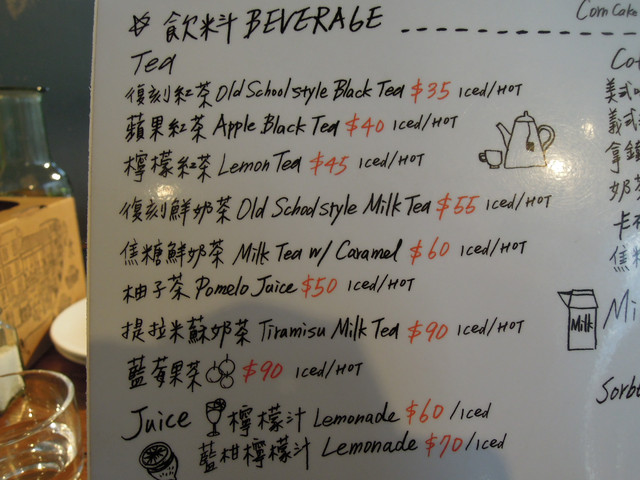 飲料 BEVERAGE
Corn Cake
Tea
復刻紅茶 Old School style Black Tea $35 Iced/HOT
蘋果紅茶 Apple Black Tea $40 Iced/HOT
檸檬紅茶 Lemon Tea $45 Iced/HOT
復刻鮮奶茶 Old School style Milk Tea $55 Iced/HOT
焦糖鮮奶茶 Milk Tea w/ Caramel $60 Iced/HOT
柚子茶 Pomelo Juice $50 Iced/HOT
提拉米蘇奶茶 Tiramisu Milk Tea $90 Iced/HOT
藍莓果茶 $90 Iced/HOT
Juice 檸檬汁 Lemonade $60/Iced
藍柑檸檬汁 Lemonade $70/Iced
美式
義式
拿鐵
奶茶
焦糖
Milk